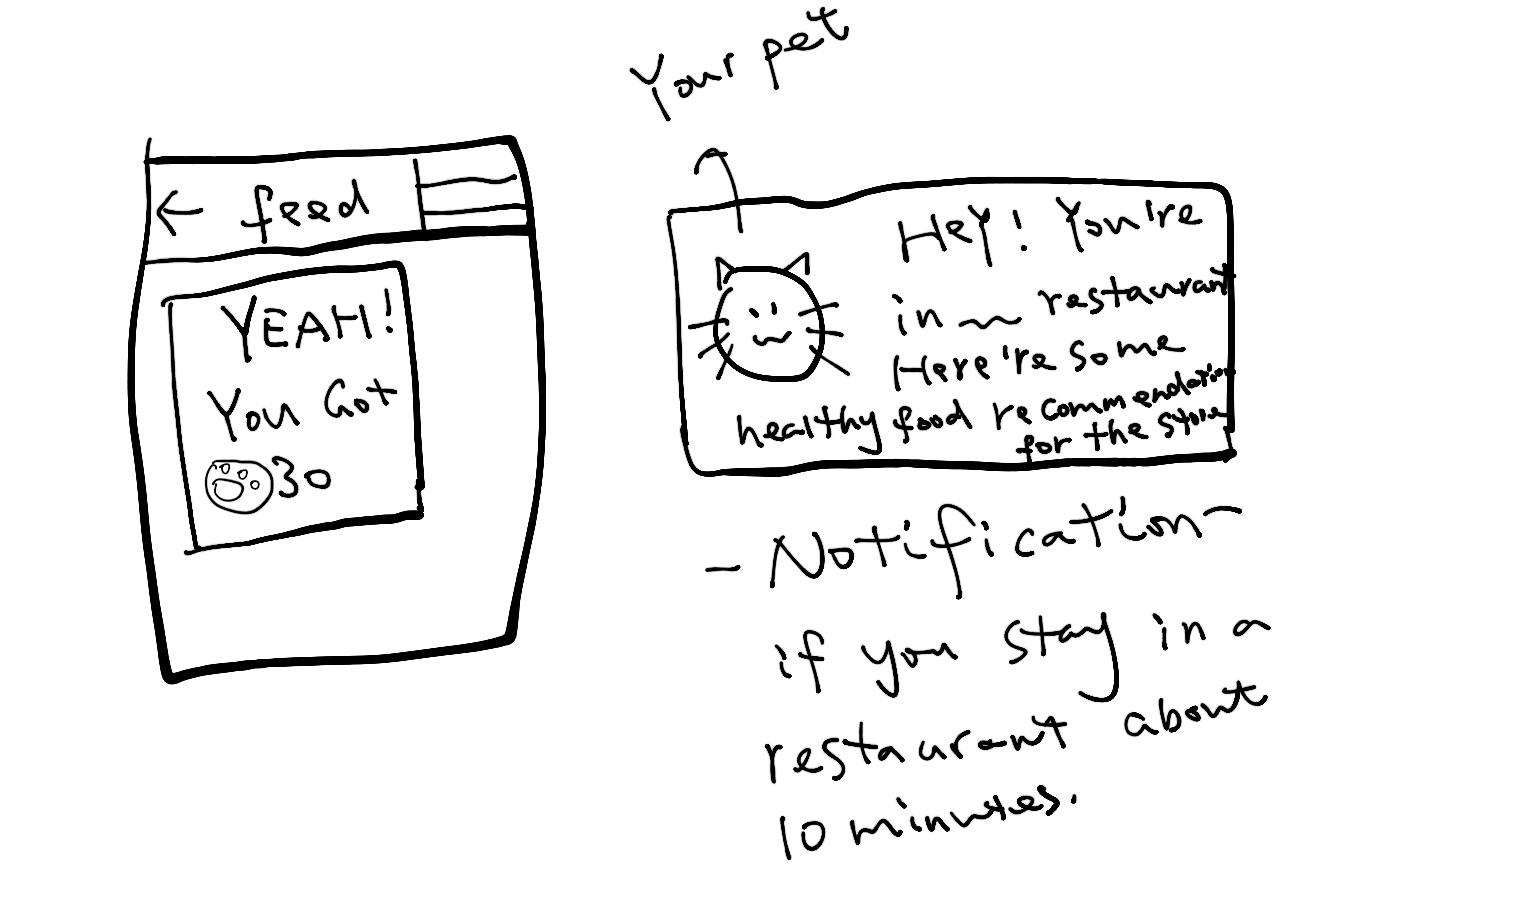 Your pet
feed
YEAH!
You Got
30
HEY! You're
in __ restaurant
Here're some
healthy food recommendation
for the store
- Notification -
if you stay in a
restaurant about
10 minutes.